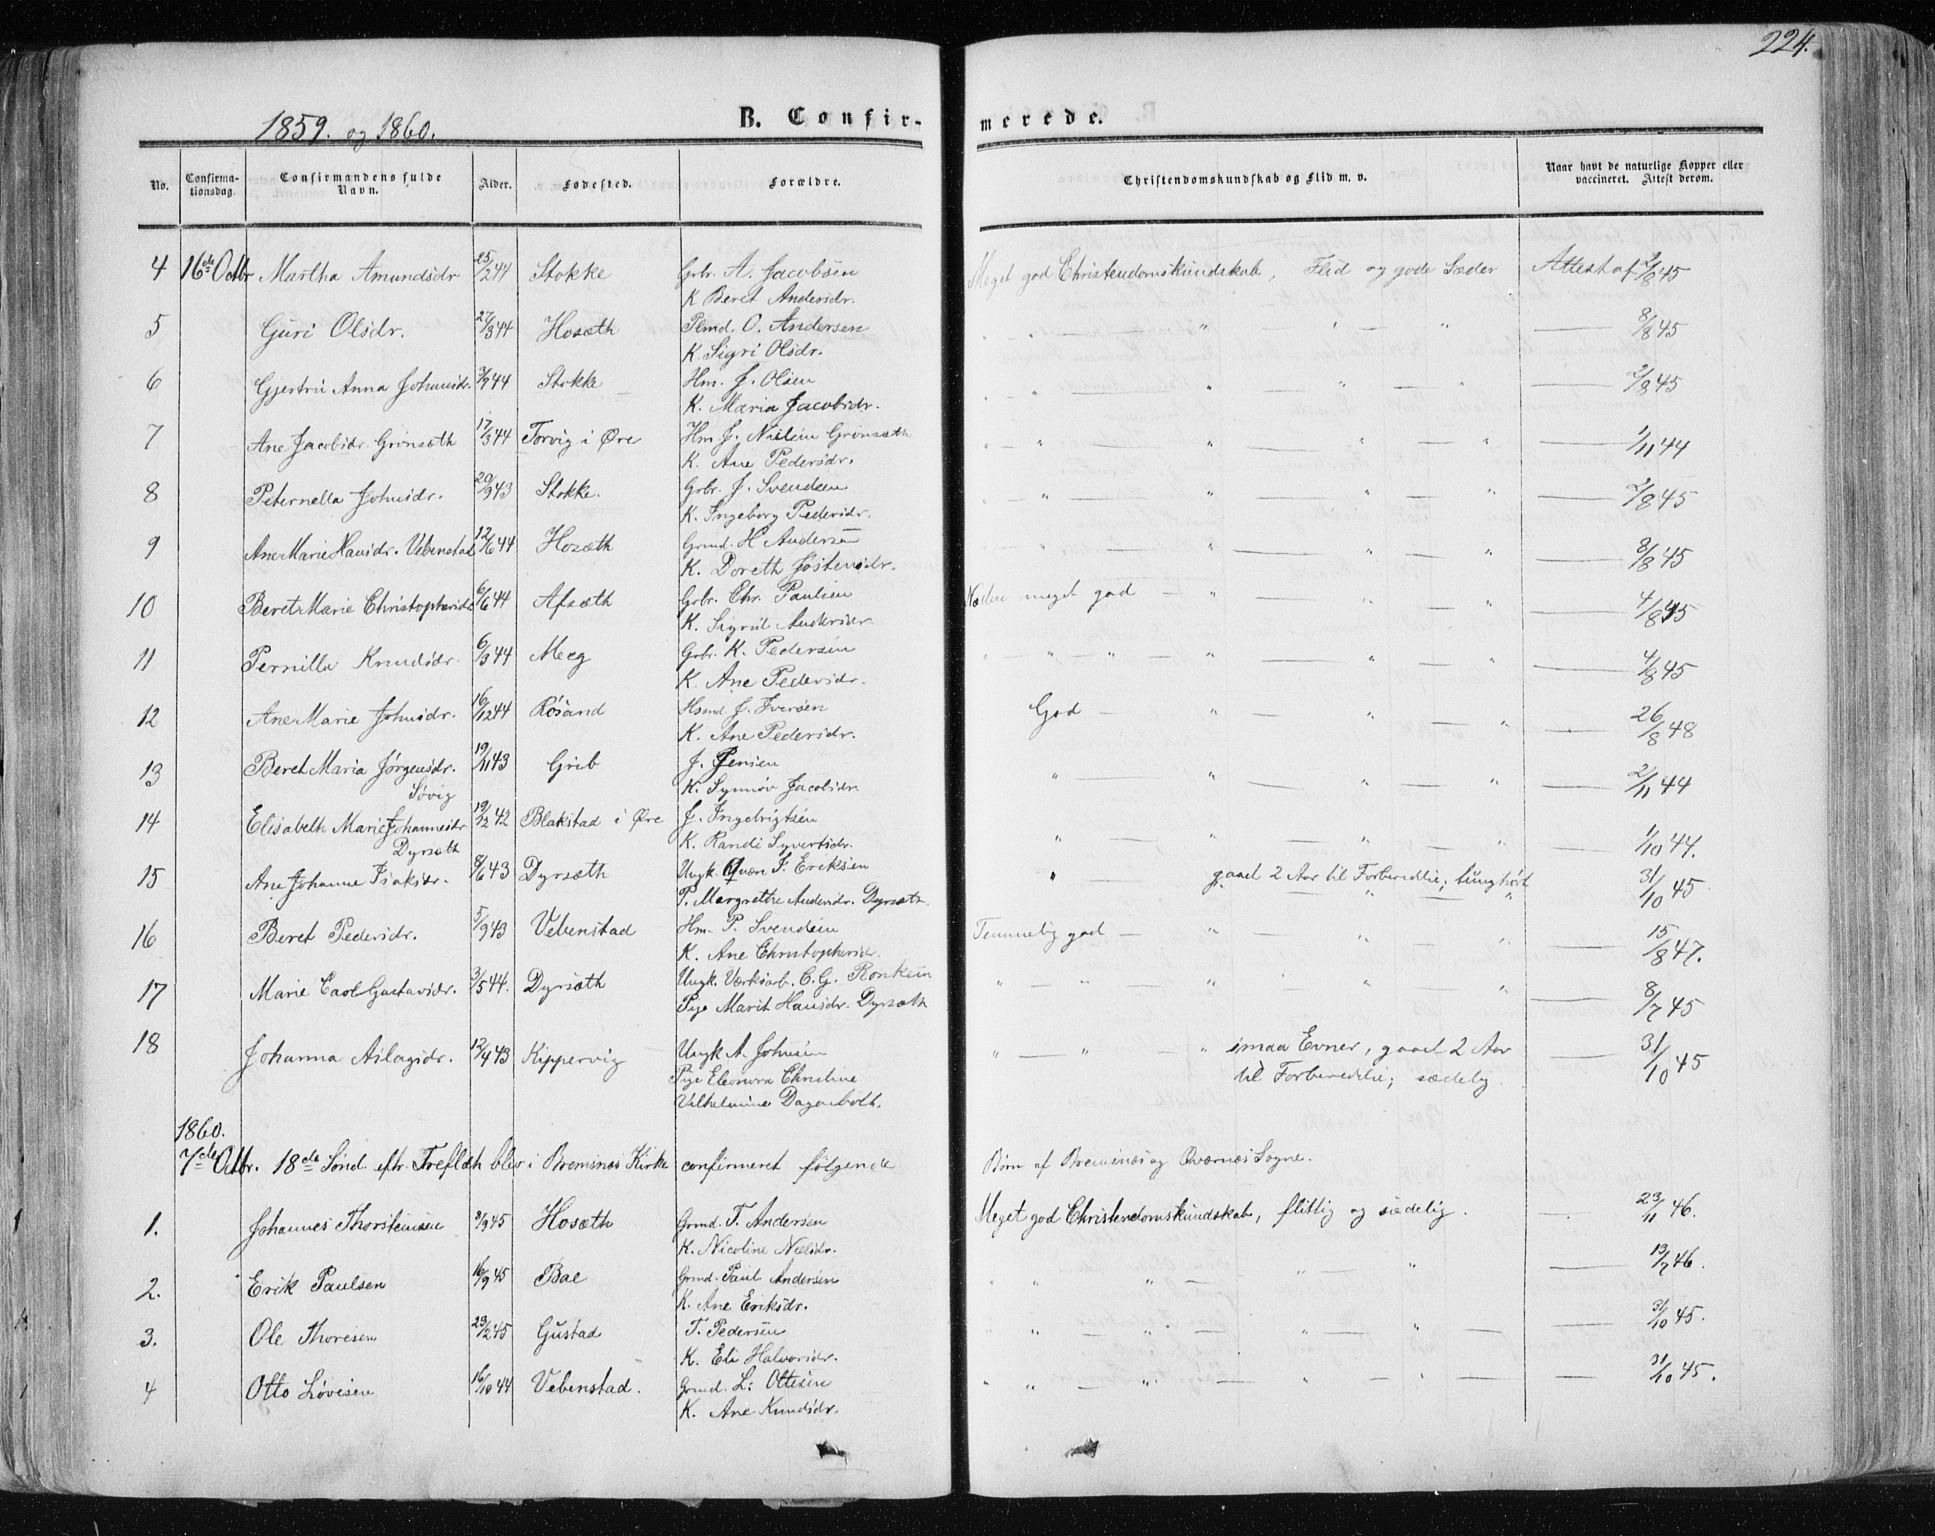 224.
1859. og 1860.
B. Confirmerede.
No. Confirmationsdag. Confirmandens fulde Navn. Alder. Fødested. Forældre. Christendomskundskab og Flid m. v. Naar havt de naturlige Kopper eller vaccineret. Attest derom.
4 16de Octbr Martha Amundsdr 25/2 44 Stokke Gbr. A. Jacobsen Meget god Christendomskundskab, Flid og gode Sæder Attest af 2/8 45
K Beret Andersdr.
5 Guri Olsdr. 27/3 44 Hosæth Plmd. O. Andersen " " — " ' — " — 8/8 45
K. Sigri Olsdr.
6 Gjertru Anna Johnsdr. 3/9 44 Stokke Hm. J. Olsen " — " " — " — " — 2/8 45
K. Maria Jacobsdr.
7 Ane Jacobsdr. Grønsæth 17/3 44 Torvig i Øre Hm J. Nielsen Grønsæth " " — " — " — " — 1/11 44
K. Ane Pedersdr.
8 Peternella Johnsdr. 20/9 43 Stokke. Gbr. J. Svendsen " — " — " — " — " — 2/8 45
K. Ingeborg Pedersdr.
9 Ane Marie Hansdr. Vebenstad 12/6 44 Hosæth Grmd. H Andersen " " — " — " — " — 8/8 45
K. Doreth Jøstensdr.
10 Beret Marie Christophersdr 6/6 44 Afsæth Gbr. Chr. Paulsen Næsten meget god — " — " — " — 4/8 45
K. Sigrid Andersdr.
11 Pernilla Knudsdr. 6/3 44 Meeg Gbr. K. Pedersen " " — " — " — " — " — 4/8 45
K. Ane Pedersdr.
12 Ane Marie Johnsdr. 16/12 44 Røsand Hsmd. J. Iversen God — " — " — " — 26/8 48
K. Ane Pedersdr.
13 Beret Maria Jørgensdr. 19/11 43 Grib J. Jensen " — " — " — " — 2/11 44
Søvig K. Synnøv Jacobsdr
14 Elisabeth Marie Johannesdr 19/2 42 Blakstad i Øre J. Ingebrigtsen " — " — " — " — 1/10 44.
Dyrsæth K. Randi Syvertsdr.
15 Ane Johanne Isaksdr. 8/6 43 Dyrsæth Ungk. Qvæn I. Eriksen " — gaaet 2 Aar til Forberedelse; tunghørt 31/10 45
P. Margrethe Andersdr. Dyrsæth.
16 Beret Pedersdr. 5/9 43 Vebenstad Hm. P. Svendsen Temmelig god — " — " — " — 15/8 47.
K. Ane Christophersdr.
17 Marie Carl Gustavsdr. 3/5 44. Dyrsæth Ungk. C. G. " — " — " — " — " — 8/7 45
Pige Marit Hansdr. Dyrsæth
18 Johanna Aslagsdr. 12/4 43 Kippervig Ungk A. Johnsen " — " — " smaa Evner, gaaet 2 Aar — 31/10 45
Pige Eleonora Christine til Forberedelse; sædelig.
Vilhelmine
1860.
7de Octbr. 18de Sønd. eftr. Trefold. blev i Bremsnes Kirke confirmeret følgende Børn af Bremsnes og Qværnes Sogne.
1. Johannes Thorstensen 8/9 45 Hosæth Grmd. T. Andersen Meget god Christendomskundskab, flittig og sædelig. — 23/11 46.
K. Nicoline Nielsdr.
2. Erik Paulsen 16/9 45 Bae Grmd. Paul Andersen " " — " — " — 13/7 46.
K. Ane Eriksdr.
3. Ole Thoresen 23/2 45 Gustad T. Pedersen " " — " — " — " — 31/10 45.
K. Eli Halvorsdr.
4 Otto Lovisen 16/10 44 Vebenstad. Grmd. L: Ottesen " " — " — " — " — 31/10 45.
K. Ane Knudsdr.